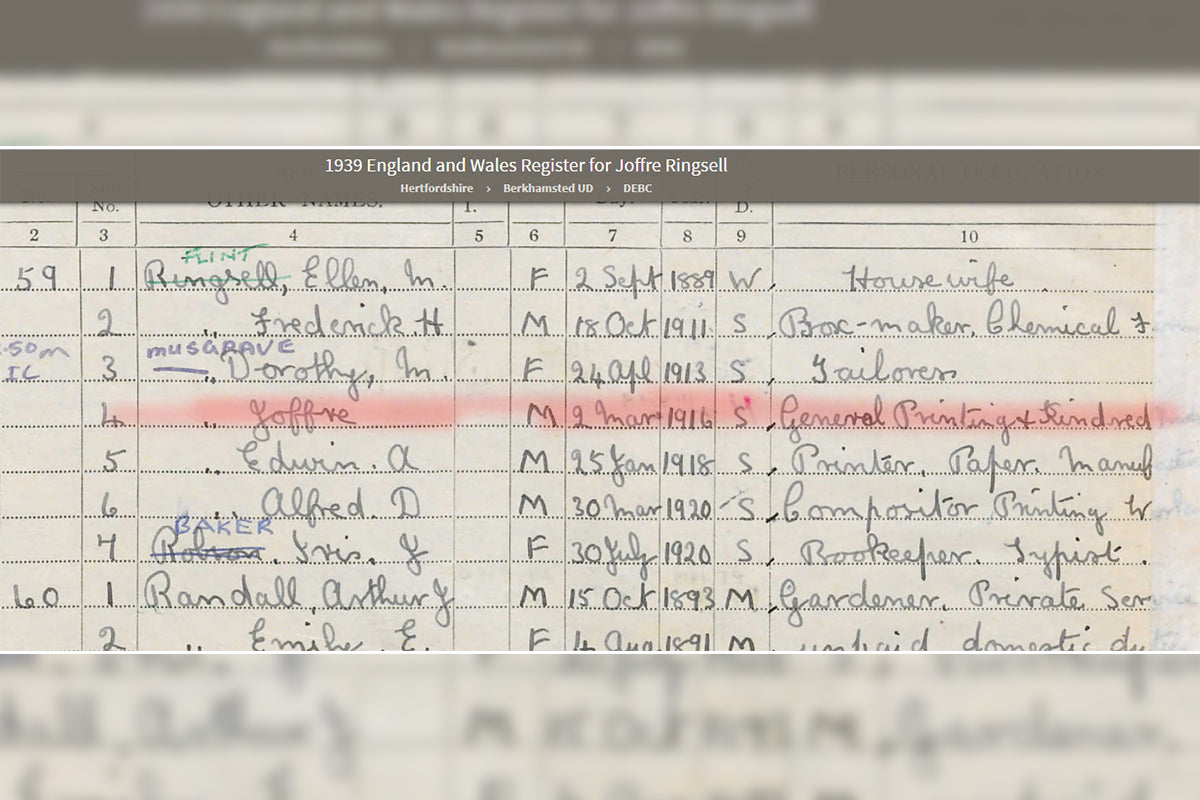 1939 England and Wales Register for Joffre Ringsell
Hertfordshire › Berkhamsted UD › DEBC
PERSONAL OCCUPATION.
No. OTHER NAMES. I. Day. Year. D.
2 3 4 5 6 7 8 9 10
FLINT
59 1 Ringsell, Ellen, M. F 2 Sept 1889 W Housewife
2 " Frederick H M 18 Oct 1911 S Box-maker, Chemical
MUSGRAVE
3 " Dorothy, M. F 24 Apl 1913 S Tailoress
IC
4 " Joffre M 2 Mar 1916 S General Printing & Kindred
5 " Edwin. A M 25 Jan 1918 S Printer. Paper. Manuf
6 " Alfred. D M 30 Mar 1920 S Compositor Printing W
BAKER
7 Iris. J F 30 July 1920 S Bookeeper. Typist.
60 1 Randall, Arthur J M 15 Oct 1893 M Gardener. Private Ser
2 " Emily E. F 4 Aug 1891 M unpaid domestic du